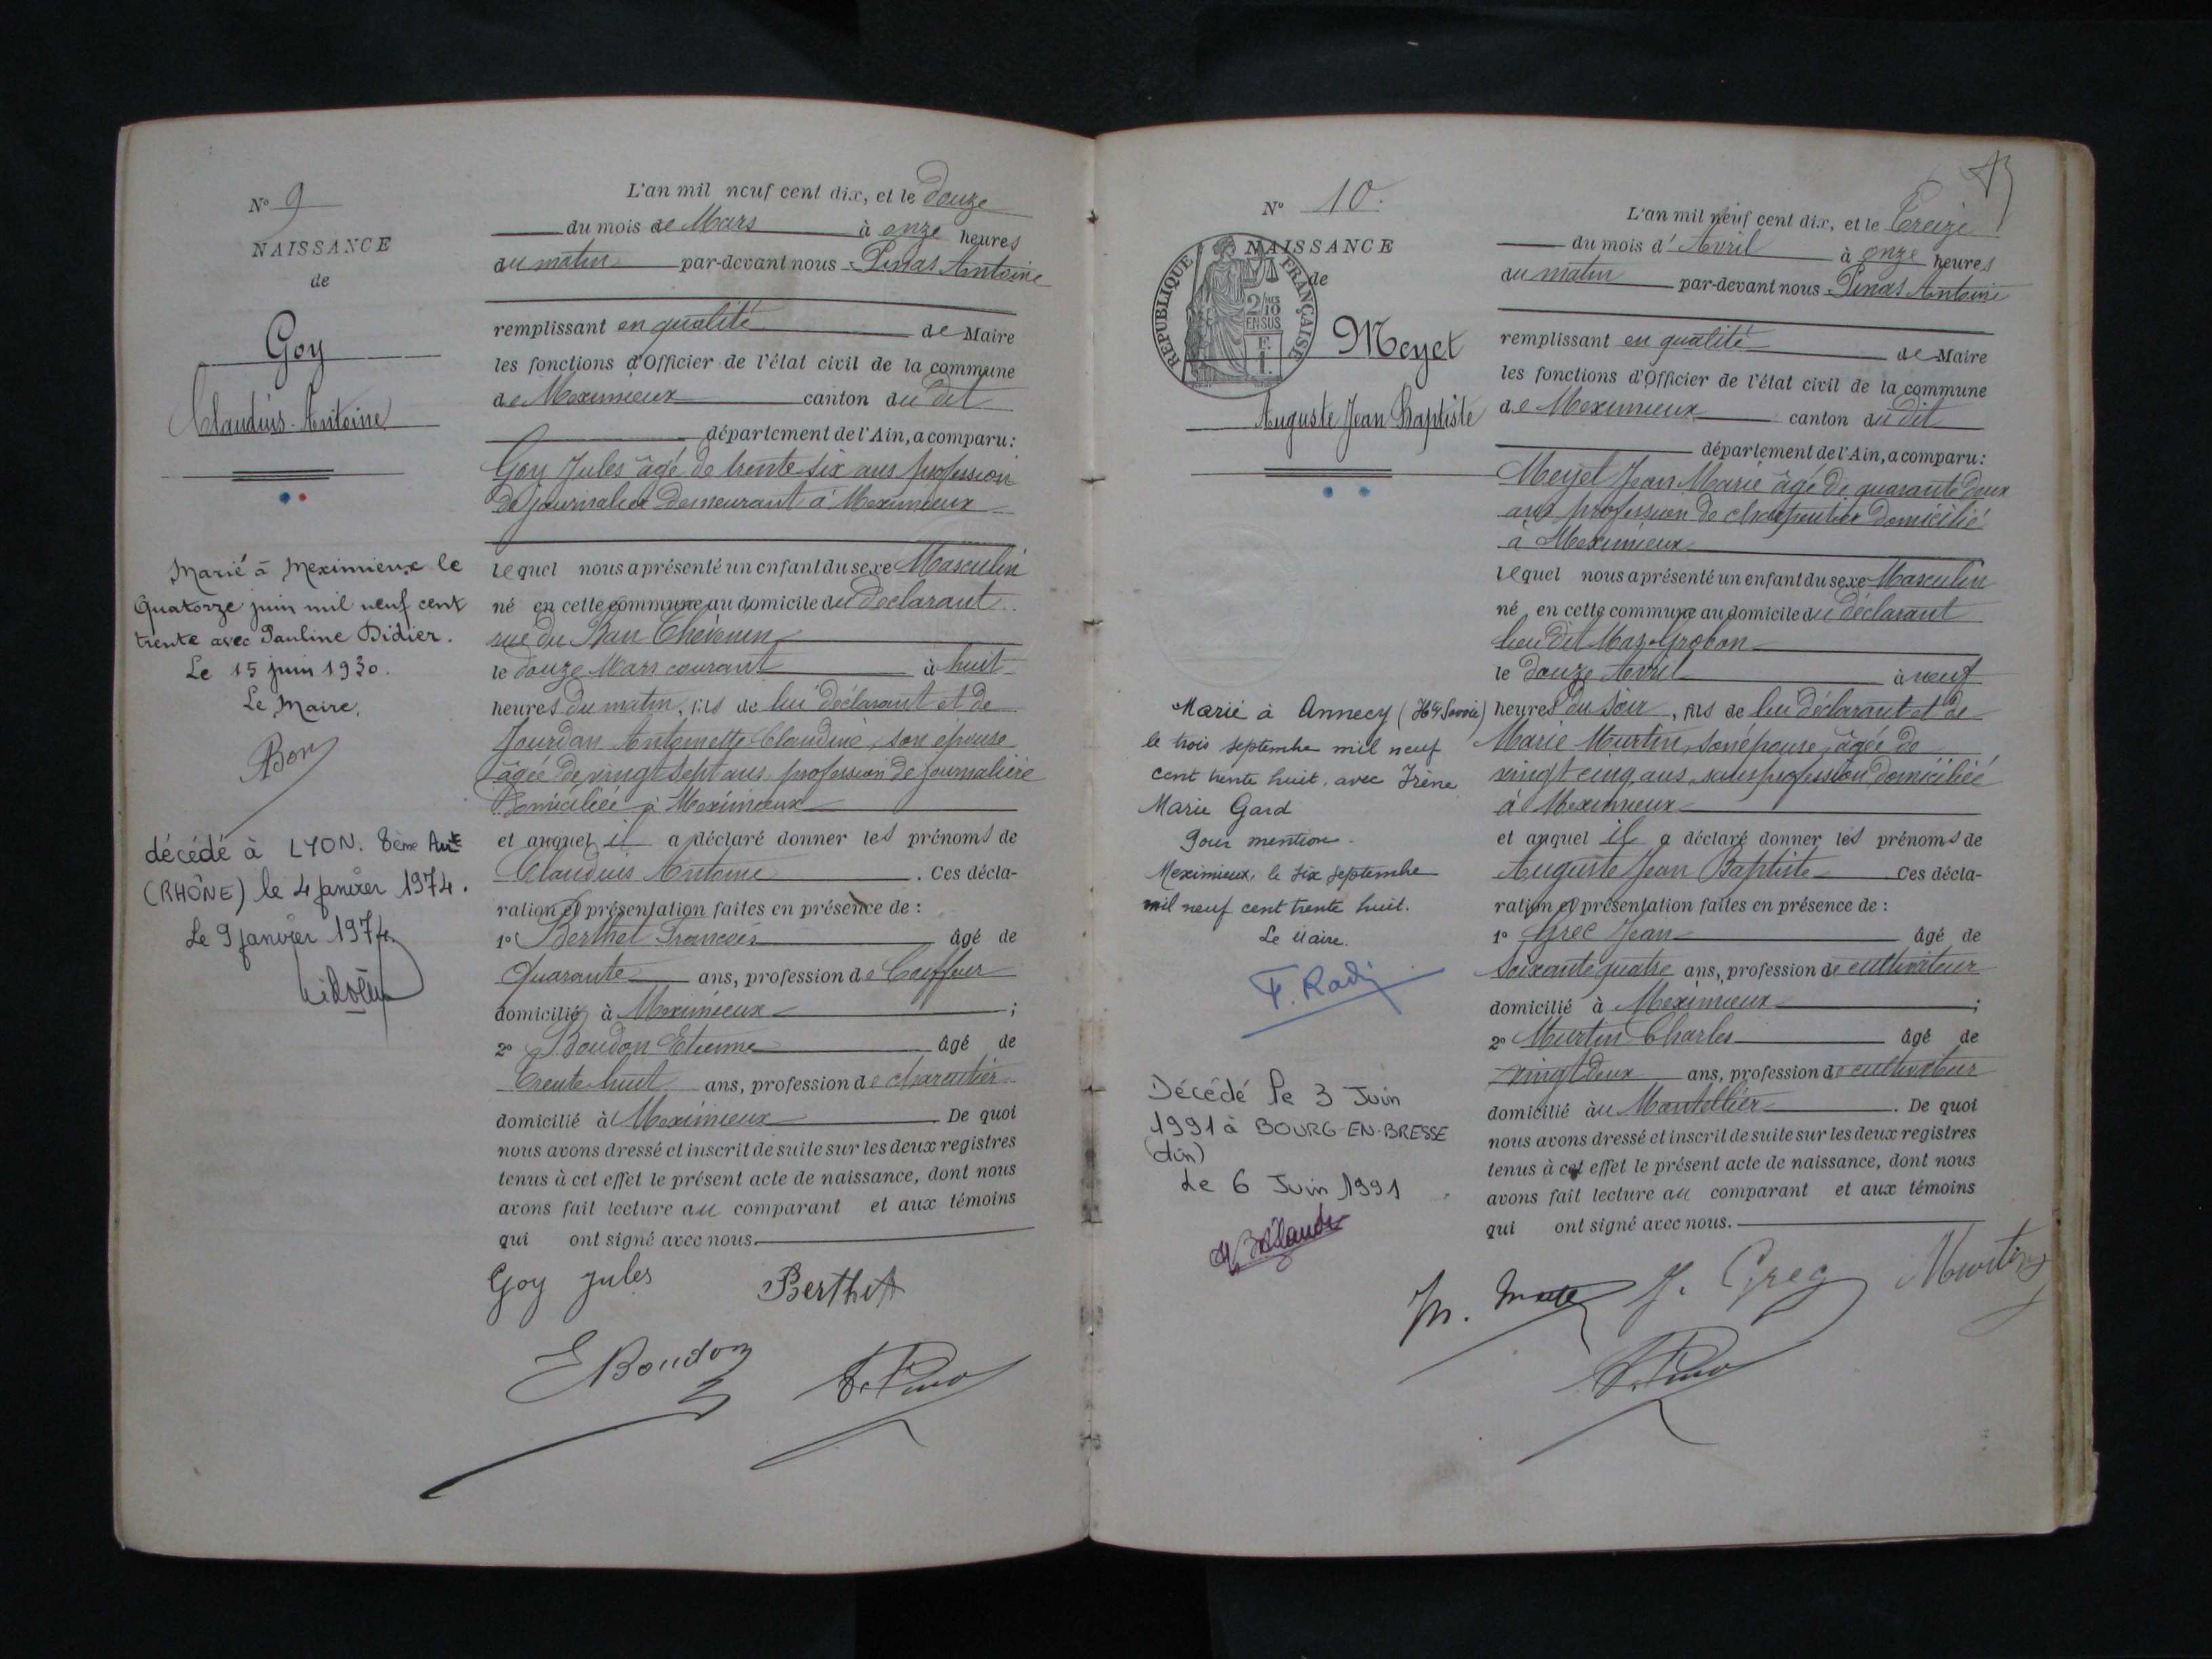 N° 9
NAISSANCE
de
Goy
Claudius-Antoine
Marié à Meximieux le
Quatorze juin mil neuf cent
trente avec Pauline Didier.
Le 15 juin 1930.
Le Maire,
décédé à LYON. 8ème Arrt
(RHÔNE) le 4 janvier 1974.
Le 9 janvier 1974
L'an mil neuf cent dix, et le douze
du mois de Mars à onze heures
du matin par-devant nous Antoine
remplissant en qualité de Maire
les fonctions d'Officier de l'état civil de la commune
de Meximieux canton du dit
département de l'Ain, a comparu:
Goy Jules âgé de trente six ans profession
de journalier demeurant à Meximieux
lequel nous a présenté un enfant du sexe Masculin
né en cette commune au domicile du déclarant
rue du
le douze Mars courant à huit
heures du matin, fils de lui déclarant et de
Jourdan Antoinette Claudine, son épouse
âgée de vingt sept ans profession de journalière
domiciliée à Meximieux
et auquel il a déclaré donner les prénoms de
Claudius Antoine. Ces décla-
ration et présentation faites en présence de :
1° Berthet François âgé de
Quarante ans, profession de Coiffeur
domicilié à Meximieux ;
2° Boudon Etienne âgé de
trente huit ans, profession de
domicilié à Meximieux. De quoi
nous avons dressé et inscrit de suite sur les deux registres
tenus à cet effet le présent acte de naissance, dont nous
avons fait lecture au comparant et aux témoins
qui ont signé avec nous.
Goy Jules Berthet
E Boudon
N° 10.
NAISSANCE
de
RÉPUBLIQUE FRANÇAISE
2/10
EN SUS
Meyet
Auguste Jean Baptiste
Marié à Annecy (Hte Savoie)
le trois septembre mil neuf
cent trente huit, avec Irène
Marie Gard
Pour mention.
Meximieux, le six septembre
mil neuf cent trente huit.
Le Maire.
Décédé le 3 Juin
1991 à BOURG-EN-BRESSE
(Ain)
Le 6 Juin 1991
L'an mil neuf cent dix, et le Treize
du mois d'Avril à onze heures
du matin par-devant nous Antoine
remplissant en qualité de Maire
les fonctions d'Officier de l'état civil de la commune
de Meximieux canton du dit
département de l'Ain, a comparu:
Meyet Jean Marie âgé de quarante deux
ans profession de charpentier domicilié
à Meximieux
lequel nous a présenté un enfant du sexe Masculin
né en cette commune au domicile du déclarant
lieu dit
le douze Avril à neuf
heures du soir, fils de lui déclarant et de
Marie Murtin, son épouse, âgée de
vingt cinq ans, sans profession, domiciliée
à Meximieux
et auquel il a déclaré donner les prénoms de
Auguste Jean Baptiste Ces décla-
ration et présentation faites en présence de :
1° Grec Jean âgé de
Soixante quatre ans, profession de cultivateur
domicilié à Meximieux ;
2° Murtin Charles âgé de
vingt deux ans, profession de cultivateur
domicilié au Montellier. De quoi
nous avons dressé et inscrit de suite sur les deux registres
tenus à cet effet le présent acte de naissance, dont nous
avons fait lecture au comparant et aux témoins
qui ont signé avec nous.
J. Grec Murtin